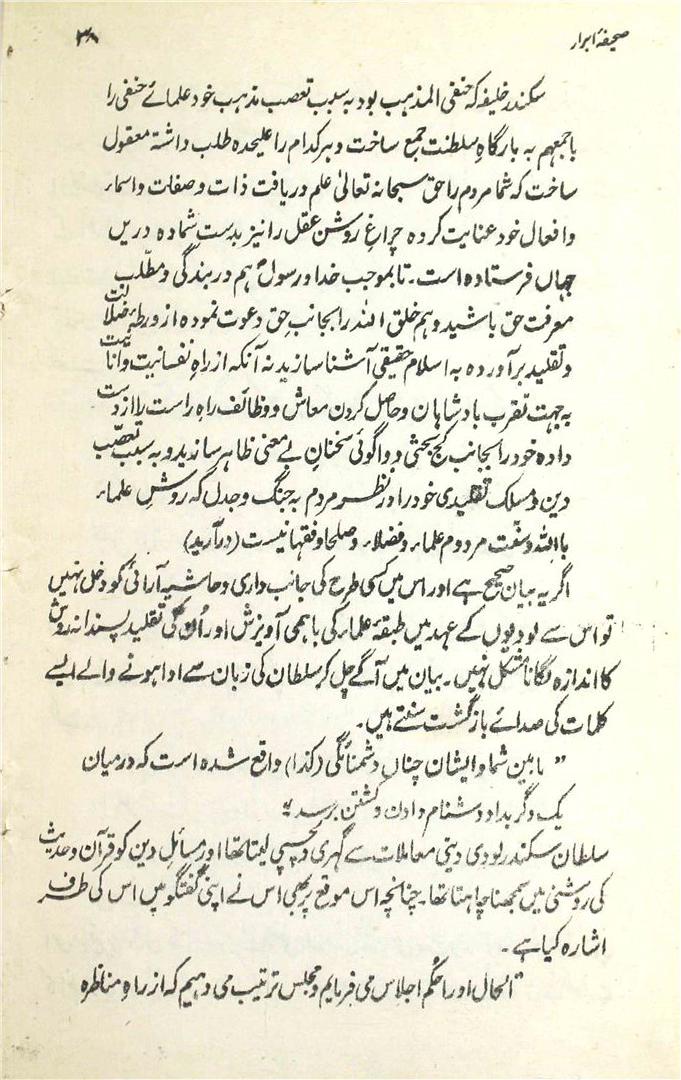 صحیفۂ ابرار
۳۸
سکندر خلیفہ کہ حنفی المذہب بود بہ سبب تعصب مذہب خود علمائے حنفی را
باجمعہم بہ بارگاہِ سلطنت جمع ساخت و ہر کدام را علیحدہ طلب داشتہ معقول
ساخت کہ شما مردم را حق سبحانہ تعالیٰ علم دریافت ذات و صفات و اسماء
و افعال خود عنایت کردہ چراغِ روشن عقل را نیز بدستِ شما دہ دریں
جہاں فرستادہ است۔ تا بموجب خدا و رسولؐ ہم در بندگی و مطلب
معرفت حق باشید و ہم خلق اللہ را بجانب حق دعوت نمودہ از ورطۂ ضلالت
و تقلید برآوردہ بہ اسلام حقیقی آشنا سازید نہ آنکہ از راہِ نفسانیت و انانیت
بہ جہت تقرب بادشاہان و حاصل کردن معاش و وظائف راہِ راست را از دست
دادہ خود را بجانب کج بحثی و واگوئی سخنانِ بے معنی ظاہر سازید و بہ سبب تعصّب
دین و مسلک تقلیدی خود را در نظر مردم بہ جنگ و جدل کہ روشِ علماء
باللہ و سنّت مردوم علماء و فضلاء و صلحا و فقہا نیست (درآرید)
اگر یہ بیان صحیح ہے اور اس میں کسی طرح کی جانب داری و حاشیہ آرائی کو دخل نہیں
تو اس سے لودیوں کے عہد میں طبقۂ علماء کی باہمی آویزش اور اُن کی تقلید پسندانہ روش
کا اندازہ لگانا مشکل نہیں۔ بیان میں آگے چل کر سلطان کی زبان سے ادا ہونے والے ایسے
کلمات کی صدائے بازگشت سنتے ہیں۔
” مابین شما و ایشان چناں دشمنائگی (کذا) واقع شدہ است کہ درمیان
یک دگر بداد دشنام دادن و کشتن برسد“
سلطان سکندر لودی دینی معاملات سے گہری دلچسپی لیتا تھا اور مسائلِ دین کو قرآن و حدیث
کی روشنی میں سمجھنا چاہتا تھا۔ چنانچہ اس موقع پر بھی اس نے اپنی گفتگو میں اس کی طرف
اشارہ کیا ہے۔
”الحال او را حکم اجلاس می فرمایم و مجلس ترتیب می دہیم کہ از راہِ مناظرہ